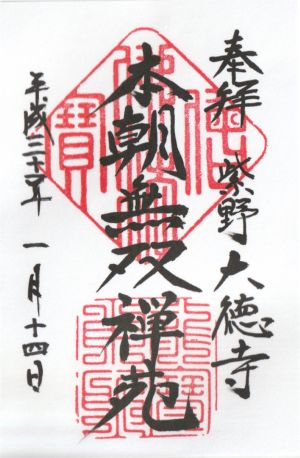 奉拝 紫野大徳寺
本朝無双禅苑
平成二十年 一月十四日